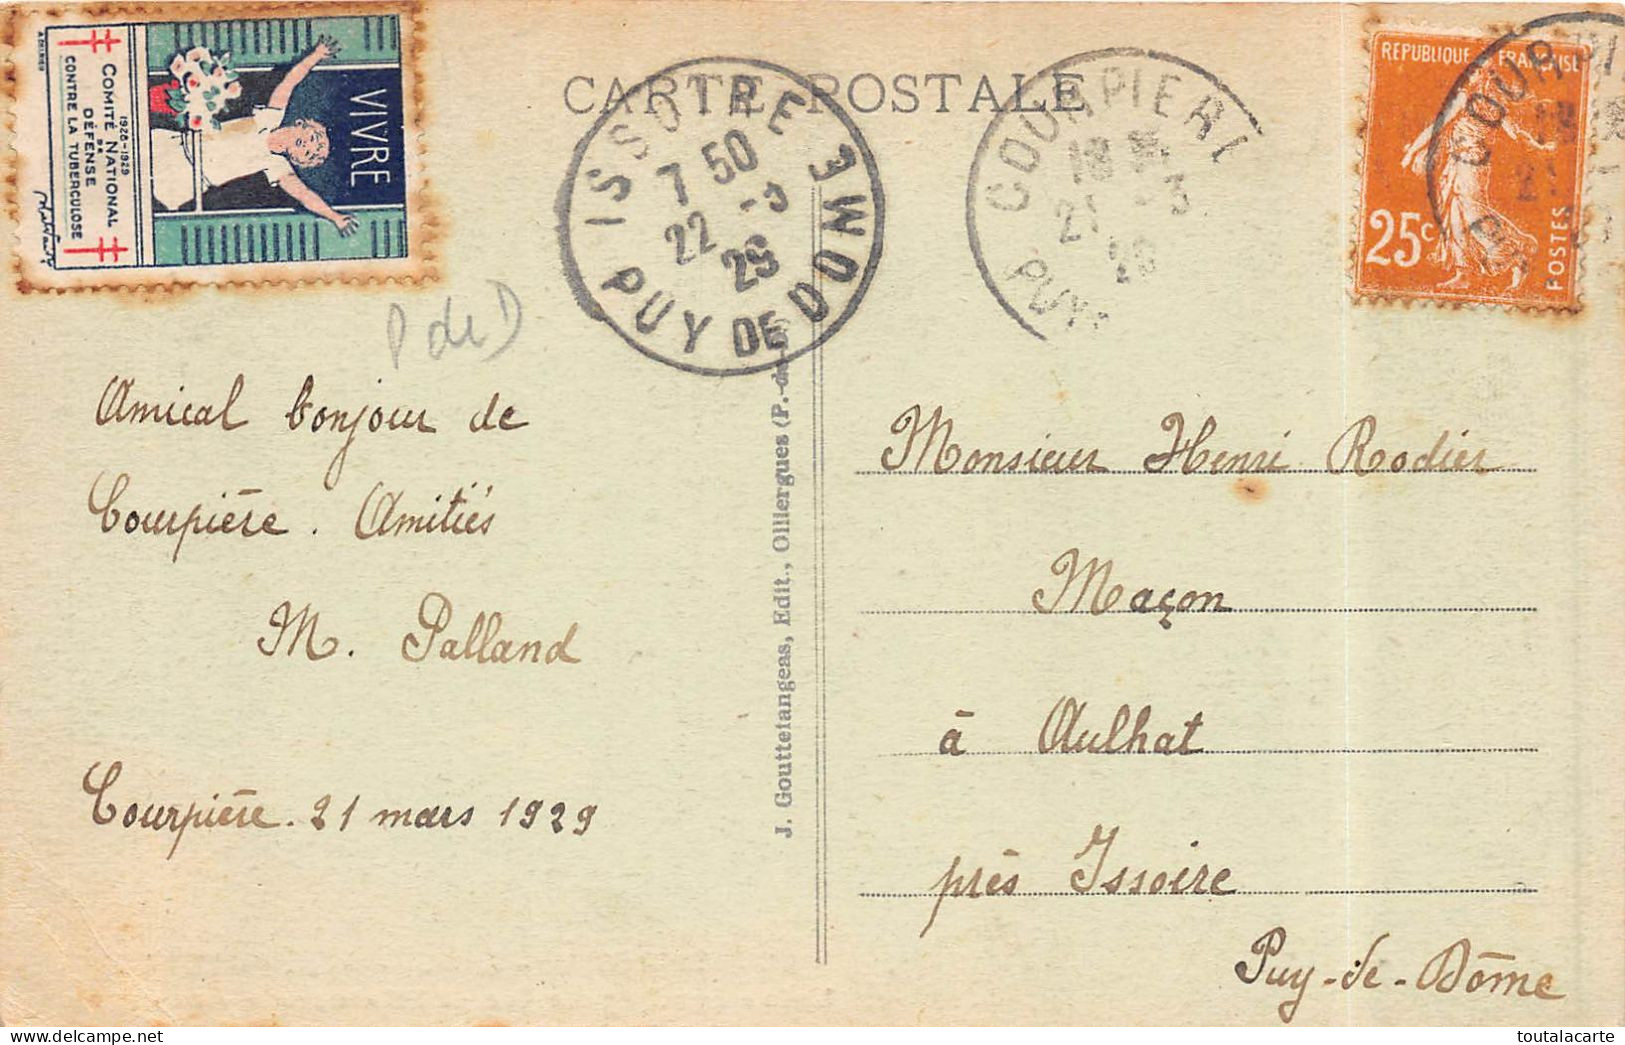 CARTE POSTALE
VIVRE
1928-1929
COMITÉ NATIONAL
DE
DÉFENSE
CONTRE LA TUBERCULOSE
ISSOIRE
7 50
22 -3
29
PUY DE DOME
COURPIERE
21 3
PUY
REPUBLIQUE FRANÇAISE
25c
POSTES
COURPI
P de D
Amical bonjour de
Courpière. Amitiés
M. Palland
Courpière. 21 mars 1929
J. Gouttefangeas, Edit., Olliergues (P.-de-
Monsieur Henri Rodier
Maçon
à Aulhat
près Issoire
Puy-de-Dôme
toutalacarte